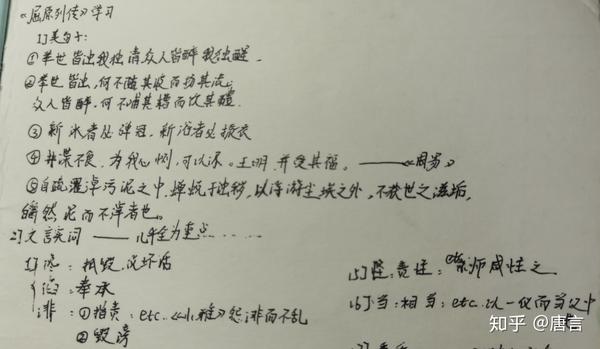 《屈原列传》学习
1)美句:
①举世皆浊我独清,众人皆醉我独醒.
②举世皆浊,何不随其波而扬其流;
众人皆醉.何不哺其糟而饮其醨.
③新沐者必弹冠,新浴者必振衣
④井渫不食,为我心恻,可以汲。王明,并受其福。——《周易》
⑤自疏濯淖污泥之中,蝉蜕于浊秽,以浮游尘埃之外,不获世之滋垢,
皭然泥而不滓者也。
2)文言实词——几乎全为重点......
:抵毁,说坏话
:奉承
诽:①指责:etc.《小雅》怨诽而不乱
②毁谤
15)怪:责怪:etc.
16)当:相当:etc.以一仪而当汉中
知乎 @唐言